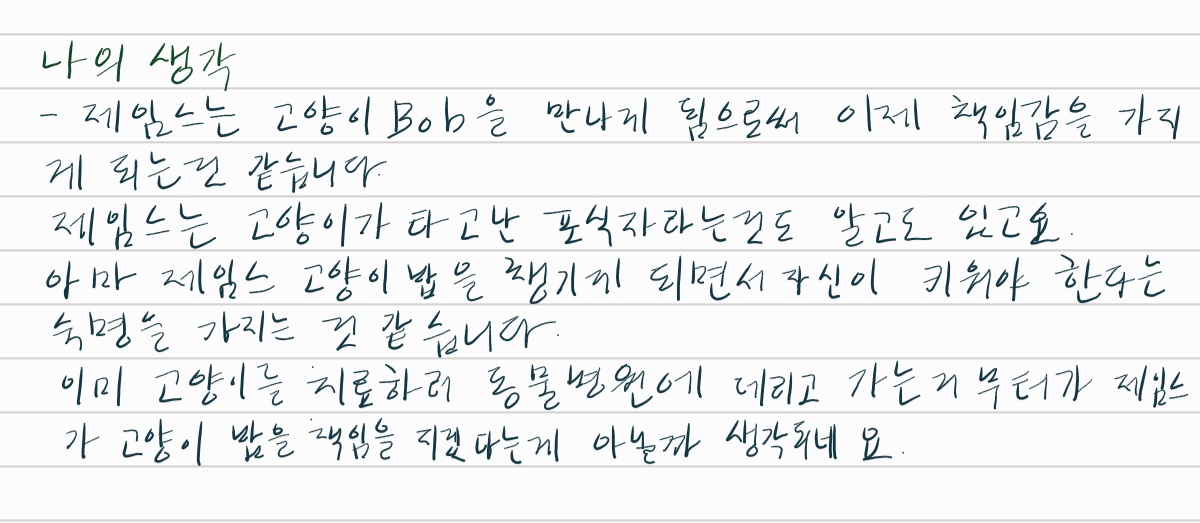 나의 생각
- 제임스는 고양이 Bob을 만나게 됨으로써 이제 책임감을 가지
게 되는것 같습니다.
제임스는 고양이가 타고난 포식자라는것도 알고도 있고요.
아마 제임스 고양이 밥을 챙기게 되면서 자신이 키워야 한다는
숙명을 가지는 것 같습니다.
이미 고양이를 치료하러 동물병원에 데리고 가는거부터가 제임스
가 고양이 밥을 책임을 지겠다는게 아닐까 생각되네요.